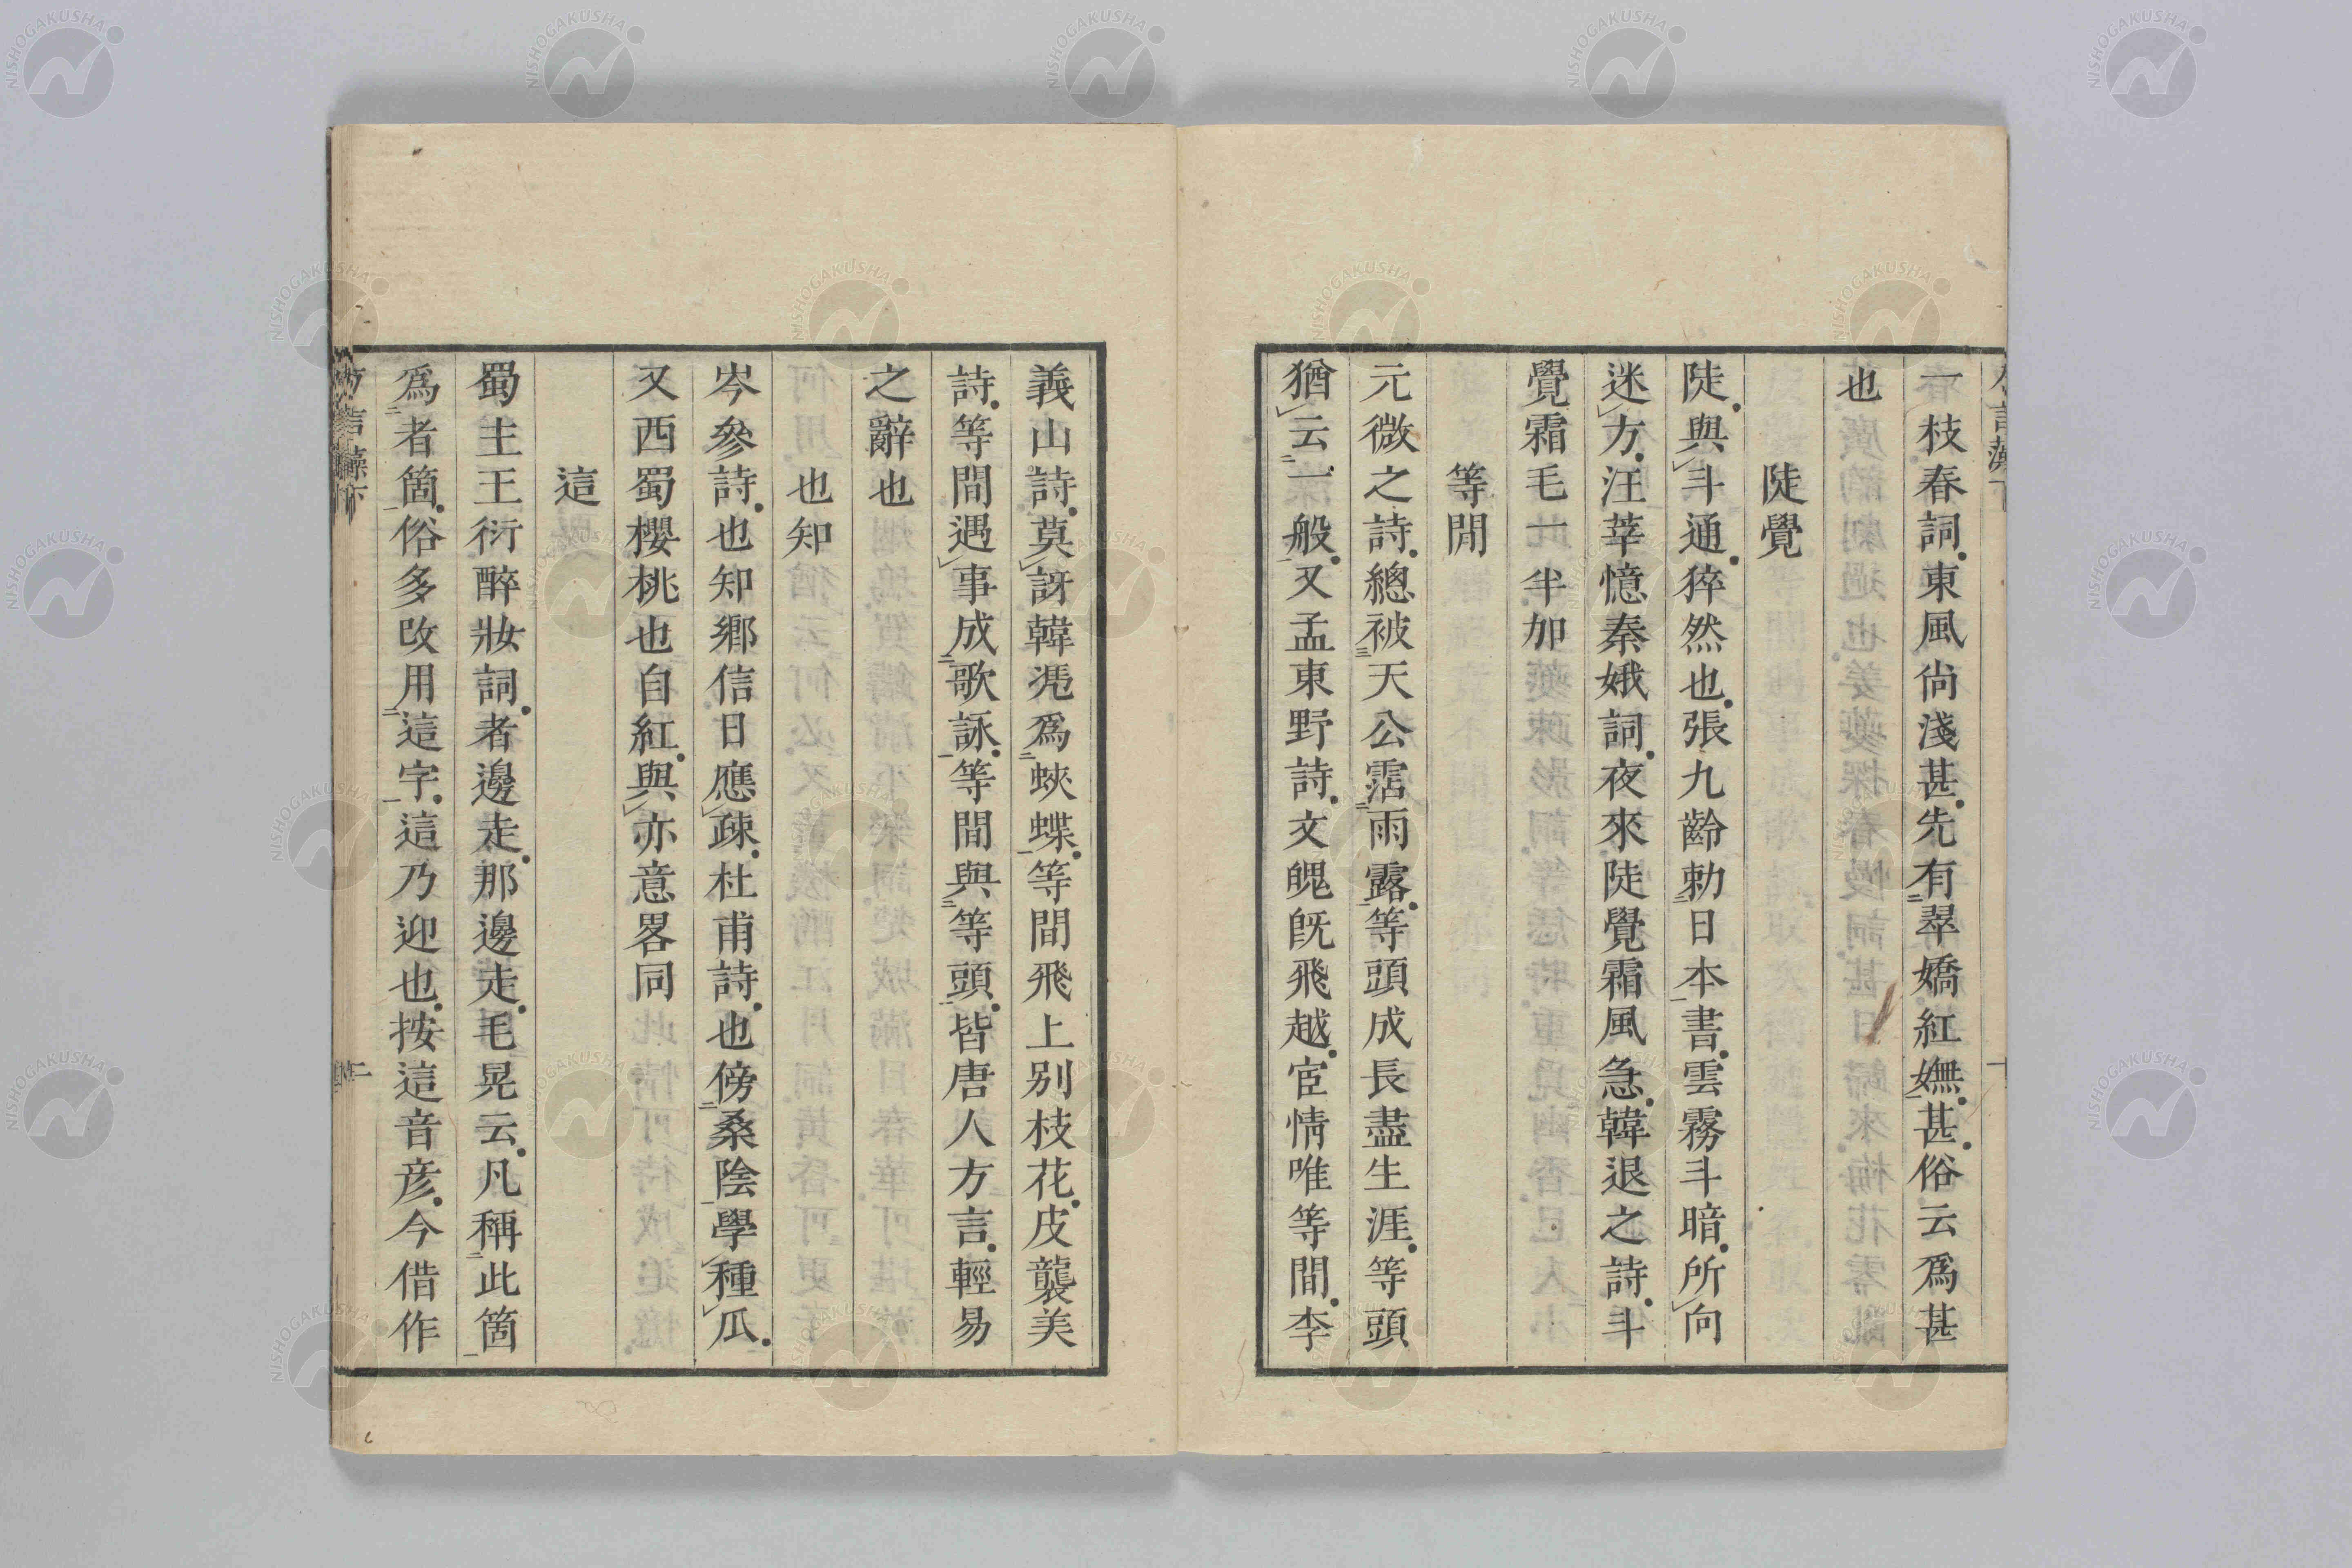 一枝春詞東風尙淺甚先有翠嬌紅嫵甚俗云爲甚
也
陡覺
陡與斗通猝然也張九齡勅日本書雲霧斗暗所向
迷方汪莘憶秦娥詞夜來陡覺霜風急韓退之詩斗
覺霜毛一半加
等閒
元微之詩總被天公霑雨露等頭成長盡生涯等頭
猶云一般又孟東野詩文魄旣飛越宦情唯等間李
義山詩莫訝韓凴爲蛺蝶等間飛上别枝花皮襲美
詩等間遇事成歌詠等間與等頭皆唐人方言輕易
之辭也
也知
岑參詩也知鄉信日應疎杜甫詩也傍桑陰學種瓜
又西蜀櫻桃也自紅與亦意畧同
這
蜀主王衍醉妝詞者邊走那邊走毛晃云凡稱此箇
爲者箇俗多改用這字這乃迎也按這音彦今借作
方言藻下
NISHOGAKUSHA